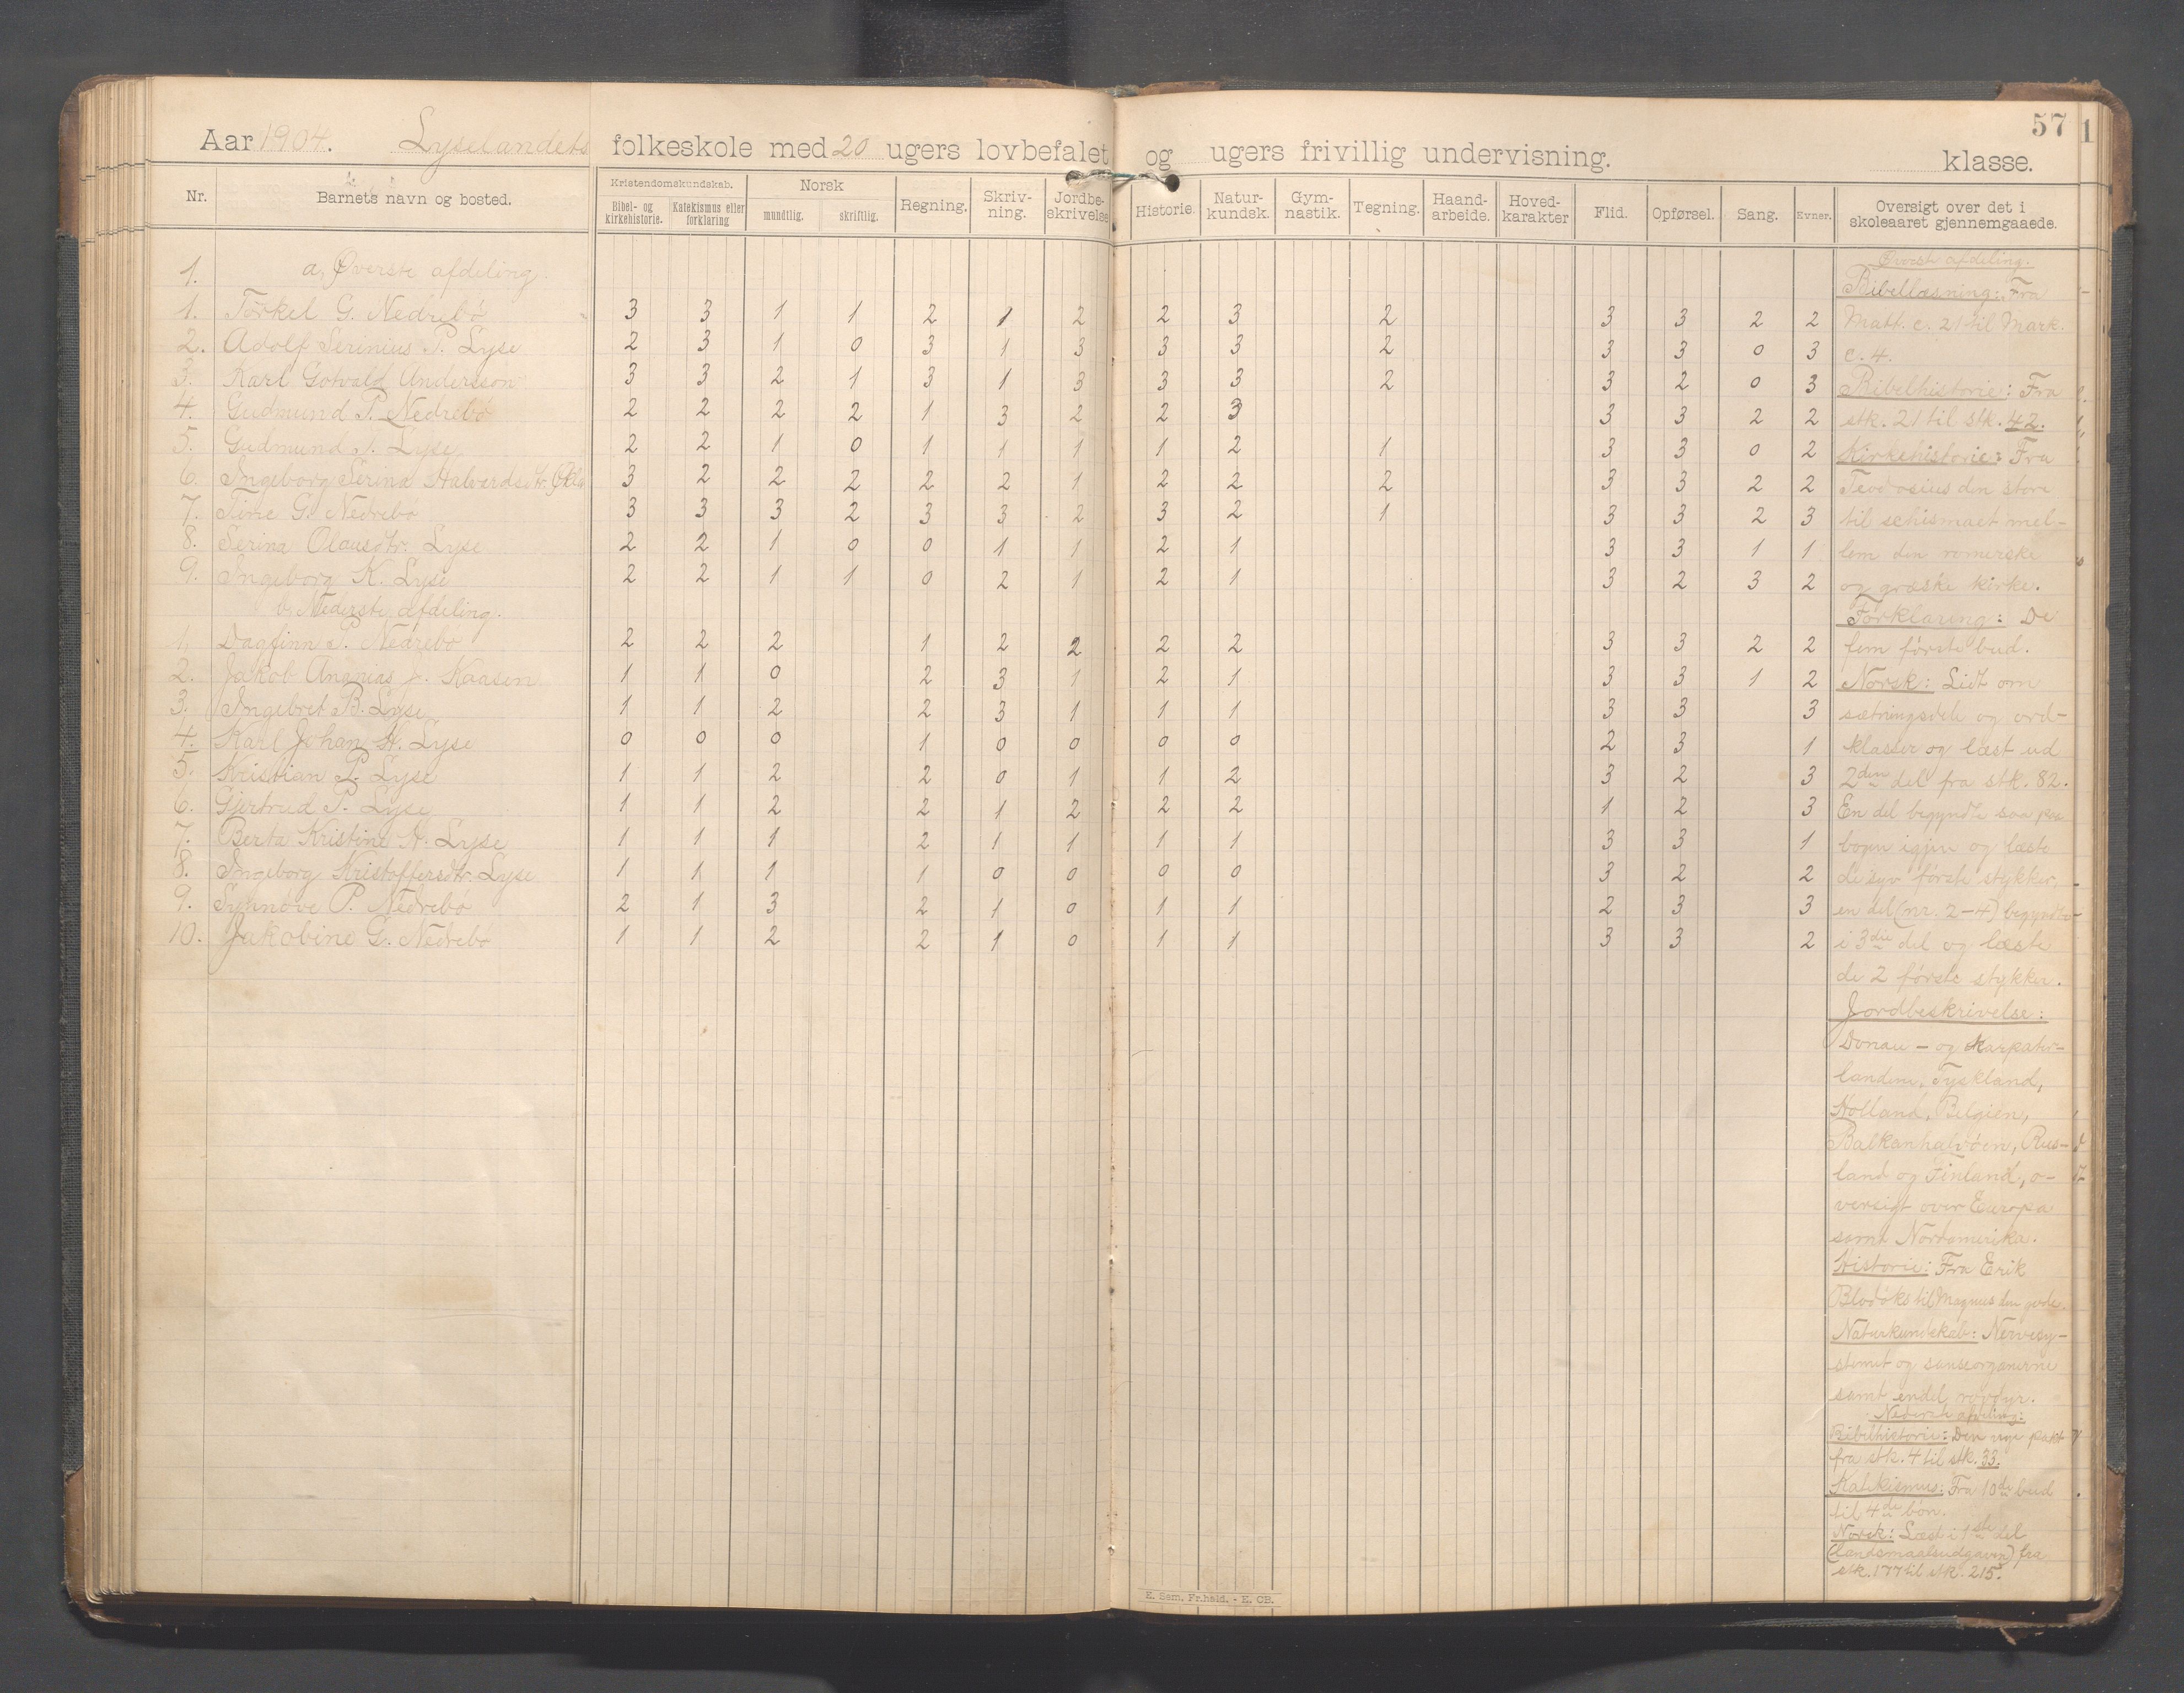 57
1
Aar 1904. Lyselandets folkeskole med 20 ugers lovbefalet og ugers frivillig undervisning. klasse.
Nr. Barnets navn og bosted. Kristendomskundskab. Bibel- og kirkehistorie. Katekismus eller forklaring Norsk mundtlig. skriftlig. Regning. Skriv-ning. Jordbe-skrivelse Historie. Natur-kundsk. Gym-nastik. Tegning. Haand-arbeide. Hoved-karakter Flid. Opførsel. Sang. Evner. Oversigt over det i skoleaaret gjennemgaaede.
1. a, Øverste afdeling.
1. Torkel G. Nedrebø 3 3 1 1 2 1 2 2 3 2 3 3 2 2
2. Adolf Serinius P. Lyse 2 3 1 0 3 1 3 3 3 2 3 3 0 3
3. Karl Gotvald Anderson 3 3 2 1 3 1 3 3 3 2 3 2 0 3
4. Gudmund P. Nedrebø 2 2 2 2 1 3 2 2 3 3 3 2 2
5. Gudmund P. Lyse 2 2 1 0 1 1 1 1 2 1 3 3 0 2
6. Ingeborg Serina Halvardsdtr. 3 2 2 2 2 2 1 2 2 2 3 3 2 2
7. Tine G. Nedrebø 3 3 3 2 3 3 2 3 2 1 3 3 2 3
8. Serina Olausdtr. Lyse 2 2 1 0 0 1 1 2 1 3 3 1 1
9. Ingeborg K. Lyse 2 2 1 1 0 2 1 2 1 3 2 3 2
b. Nederste afdeling.
1. Dagfinn P. Nedrebø 2 2 2 1 2 2 2 2 3 3 2 2
2. Jakob Ananias J. Kaasen 1 1 0 2 3 1 2 1 3 3 1 2
3. Ingebret B. Lyse 1 1 2 2 3 1 1 1 3 3 3
4. Karl Johan H. Lyse 0 0 0 1 0 0 0 0 2 3 1
5. Kristian P. Lyse 1 1 2 2 0 1 1 2 3 2 3
6. Gjertrud P. Lyse 1 1 2 2 1 2 2 2 1 2 3
7. Berta Kristine H. Lyse 1 1 1 2 1 1 1 1 3 3 1
8. Ingeborg Kristoffersdtr. Lyse 1 1 1 1 0 0 0 0 3 2 2
9. Synnøve P. Nedrebø 2 1 3 2 1 0 1 1 2 3 3
10. Jakobine G. Nedrebø 1 1 2 2 1 0 1 1 3 3 2
Øverste afdeling.
Bibellæsning: Fra
Matt. c. 21 til Mark.
c. 4.
Bibelhistorie: Fra
stk. 21 til stk. 42.
Kirkehistorie: Fra
Teodosius den store
til schismaet mel-
lem den romerske
og græske kirke.
Forklaring: De
fem første bud.
Norsk: Lidt om
sætningsdele og ord-
klasser og læst ud
2den del fra stk. 82.
En del begyndte saa paa
bogen igjen og læste
de syv første stykker,
en del (nr. 2-4) begyndte
i 3die del og læste
de 2 første stykker.
Jordbeskrivelse:
Donau- og Karpater-
landene, Tyskland,
Holland, Belgien,
Balkanhalvøen, Rus-
land og Finland, o-
versigt over Europa
samt Nordamerika.
Historie: Fra Erik
Blodøks til Magnus den gode.
Naturkundskab: Nervesy-
stemet og sanseorganerne
samt endel rovdyr.
Nederste afdeling:
Bibelhistorie: Den nye pakt
fra stk. 4 til stk. 33.
Katekismus: Fra 10de bud
til 4de bøn.
Norsk: Læst i 1ste del
(landsmaalsudgaven) fra
stk. 177 til stk. 215.
E. Sem, Fr.hald. - E. CB.